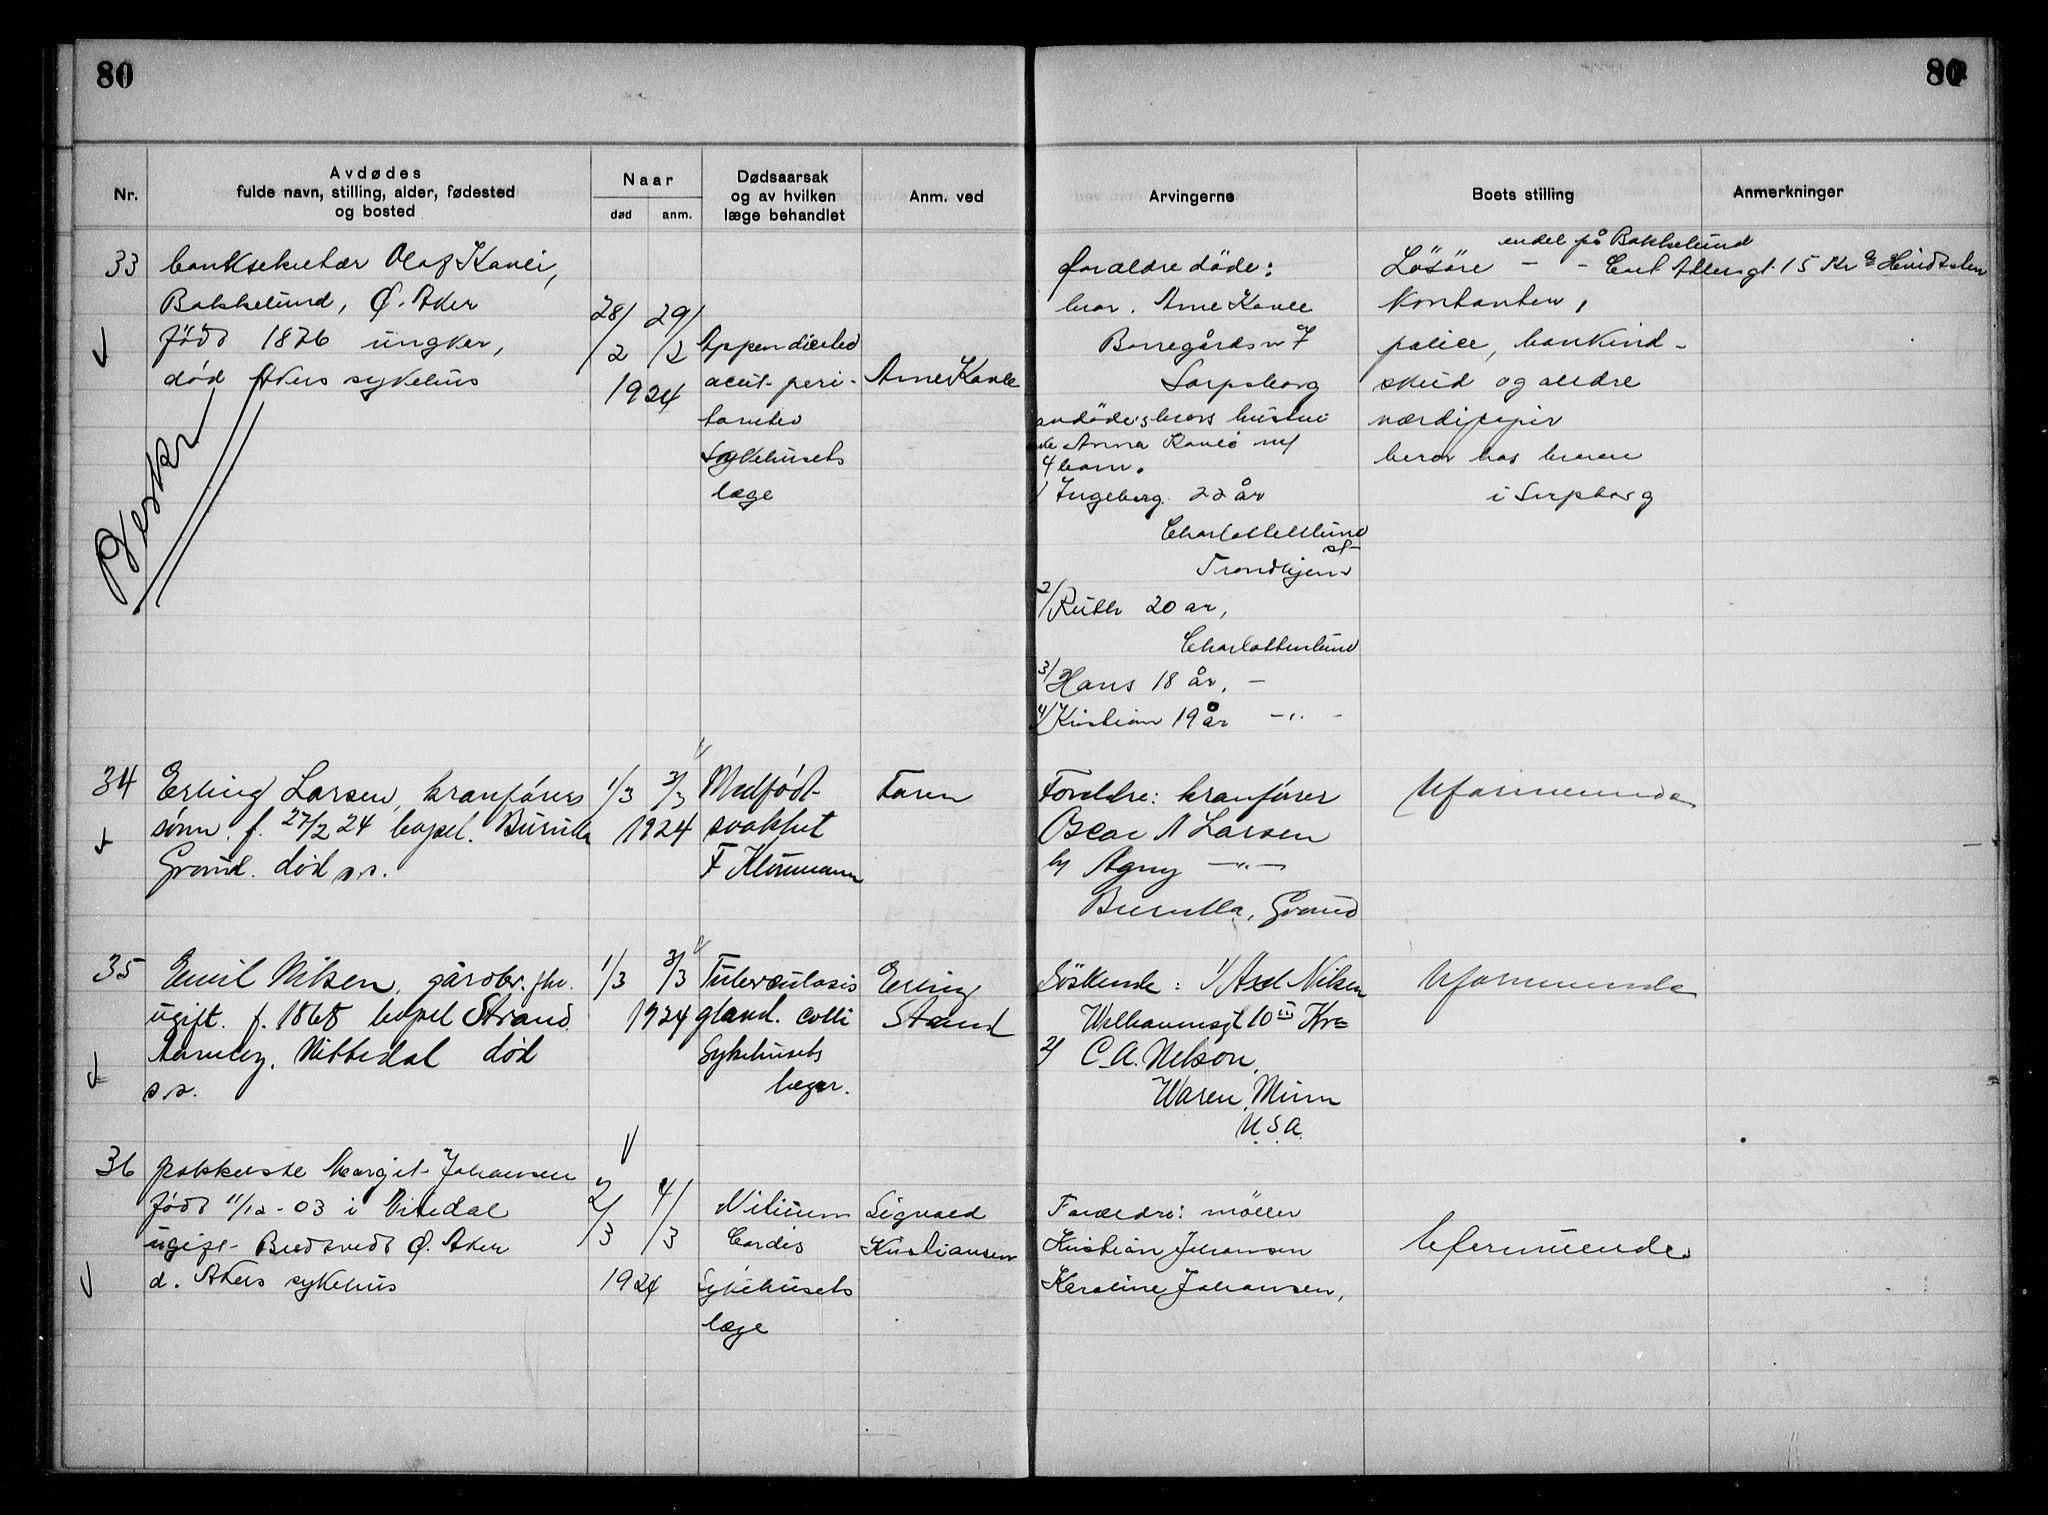 80
80
Nr.
Avdødes
fulde navn, stilling, alder, fødested
og bosted
Naar
død
anm.
Dødsaarsak
og av hvilken
læge behandlet
Anm. ved
Arvingerne
Boets stilling
Anmerkninger
33
banksekretær Olaf Kavli,
Bakkelund, Ø. Aker
født 1876 ungkar,
død Akers sykehus
28/2
29/2
1924
acut peri-
Sykehusets
læge
Arne Kavle
foreldre døde:
bror. Arne Kavle
Borregårdsv 7
Sarpsborg
avdødes brors hustru
Anna Kavle m/
4 barn.
1/ Ingeborg 22 år
Charlottenlund
st
Trondhjem
2/ Ruth 20 år,
Charlottenlund
3/ Hans 18 år, —
4/ Kristian 19 år — " —
endel på Bakkelund
Løsøre — —
Kontanter,
police, bankind-
skud og andre
værdipapir
beror hos broren
i Sarpsborg
34
Erling Larsen, kranførers
sønn. f. 27/2 24 bopel.
Grorud. død s.s.
1/3
3/3
1924
Medfødt
svakhet
Faren
Foreldre: kranfører
Oscar A Larsen
— " —
Grorud
Uformuende
35
Emil Nilsen, gårdbr.
ugift. f. 1868 bopel Strand
Nittedal død
s.s.
1/3
3/3
1924
Tuberculosis
gland. colli
Sykehusets
læger.
Erling
Strand
Søskende: 1/ Axel Nilsen
Welhavensgt 10 III Kra
2/ C. A. Nelson,
Waren, Minn
U.S.A.
Uformuende
36
Margit Johansen
født 11/12-03 i Nitedal
ugift Bredtvedt Ø. Aker
d. Akers sykehus
2/3
4/3
1924
Vitium
Cordis
Sykehusets
læge
Sigvald
Kristiansen
Foreldre: møller
Kristian Johansen
Karoline Johansen,
Uformuende